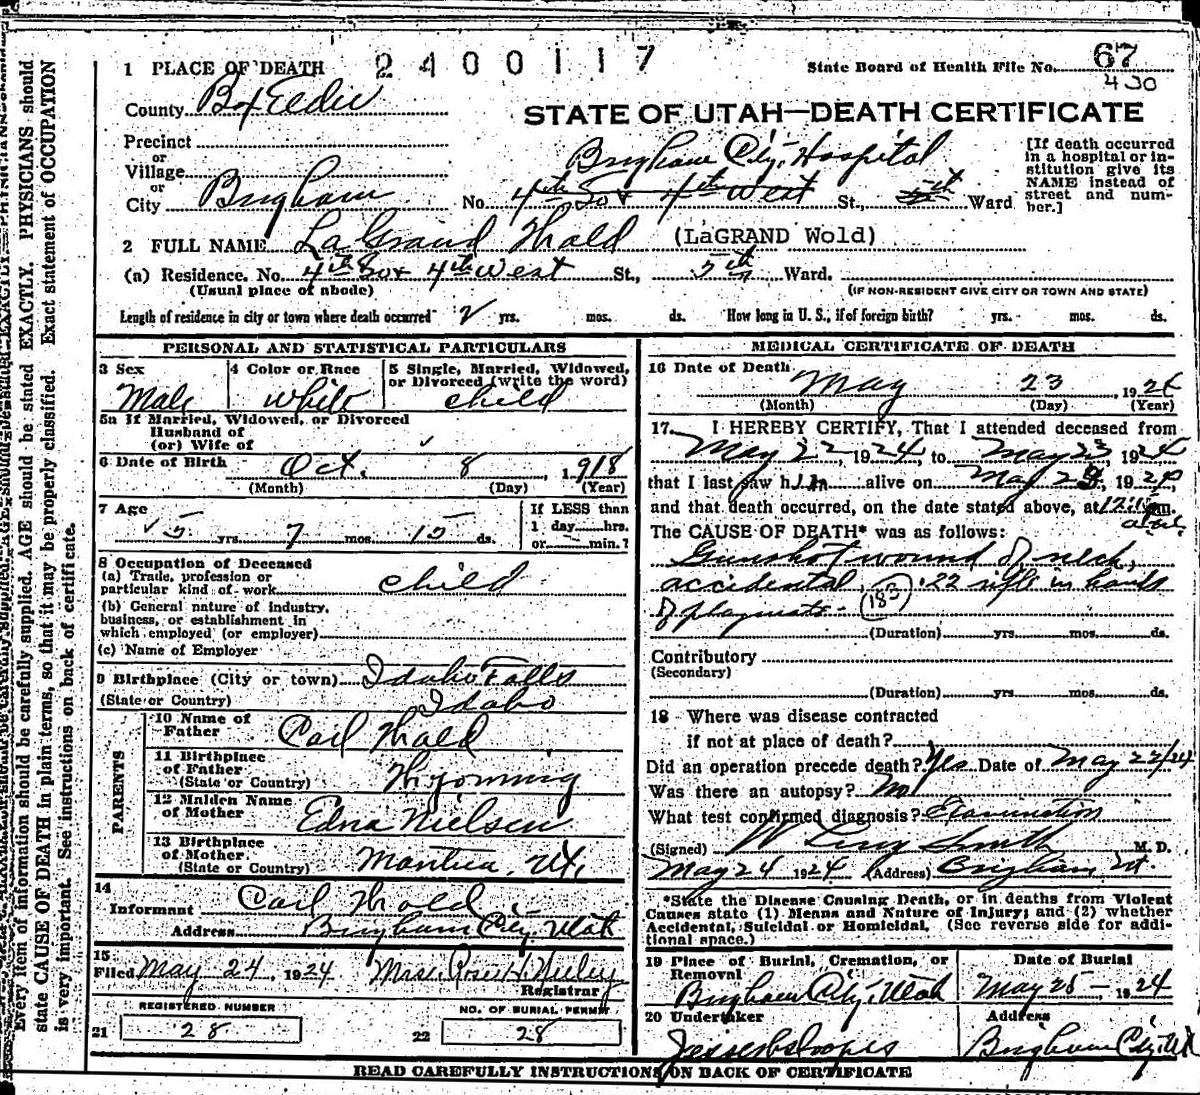 2400117
State Board of Health File No. 67
430
1 PLACE OF DEATH
County Box Elder
STATE OF UTAH—DEATH CERTIFICATE
Precinct
or
Village
or
City Brigham
Brigham City Hospital
No. 4th So & 4th West St., 5th Ward
[If death occurred
in a hospital or in-
stitution give its
NAME instead of
street and num-
ber.]
2 FULL NAME LaGrand Wold (LaGRAND Wold)
(a) Residence. No. 4th So & 4th West St., 5th Ward.
(Usual place of abode)
(IF NON-RESIDENT GIVE CITY OR TOWN AND STATE)
Length of residence in city or town where death occurred 2 yrs. mos. ds. How long in U. S., if of foreign birth? yrs. mos. ds.
PERSONAL AND STATISTICAL PARTICULARS
3 Sex
Male
4 Color or Race
White
5 Single, Married, Widowed,
or Divorced (write the word)
child
5a If Married, Widowed, or Divorced
Husband of
(or) Wife of
6 Date of Birth Oct. 8 1918
(Month) (Day) (Year)
7 Age
5 yrs. 7 mos. 15 ds.
If LESS than
1 day hrs.
or min.?
8 Occupation of Deceased
(a) Trade, profession or
particular kind of work child
(b) General nature of industry,
business, or establishment in
which employed (or employer)
(c) Name of Employer
9 Birthplace (City or town) Idaho Falls
(State or Country) Idaho
PARENTS
10 Name of
Father Carl Wold
11 Birthplace
of Father
(State or Country) Wyoming
12 Maiden Name
of Mother Edna Nielsen
13 Birthplace
of Mother
(State or Country) Mantua, Ut.
14
Informant Carl Wold
Address Brigham City, Utah
15
Filed May 24 1924 Mrs. Rose H. Neeley
Registrar
REGISTERED NUMBER
21 28
NO. OF BURIAL PERMIT
22 28
MEDICAL CERTIFICATE OF DEATH
16 Date of Death May 23, 1924
(Month) (Day) (Year)
17. I HEREBY CERTIFY, That I attended deceased from
May 22, 1924, to May 23, 1924
that I last saw him alive on May 23, 1924,
and that death occurred, on the date stated above, at 12:15 am.
The CAUSE OF DEATH* was as follows:
Gunshot wound of neck,
accidental, .22 rifle in hands
of playmate. (183)
(Duration) yrs. mos. ds.
Contributory
(Secondary)
(Duration) yrs. mos. ds.
18 Where was disease contracted
if not at place of death?
Did an operation precede death? Yes Date of May 22/24
Was there an autopsy? No
What test confirmed diagnosis? Examination
(Signed) W Smith M. D.
May 24 1924 (Address) Brigham Ut.
*State the Disease Causing Death, or in deaths from Violent
Causes state (1) Means and Nature of Injury; and (2) whether
Accidental, Suicidal or Homicidal. (See reverse side for addi-
tional space.)
19 Place of Burial, Cremation, or
Removal
Brigham City, Utah
Date of Burial
May 25 - 1924
20 Undertaker
Address
Brigham City, Ut
READ CAREFULLY INSTRUCTIONS ON BACK OF CERTIFICATE
Every item of information should be carefully supplied. AGE should be stated EXACTLY. PHYSICIANS should
state CAUSE OF DEATH in plain terms, so that it may be properly classified. Exact statement of OCCUPATION
is very important. See instructions on back of certificate.